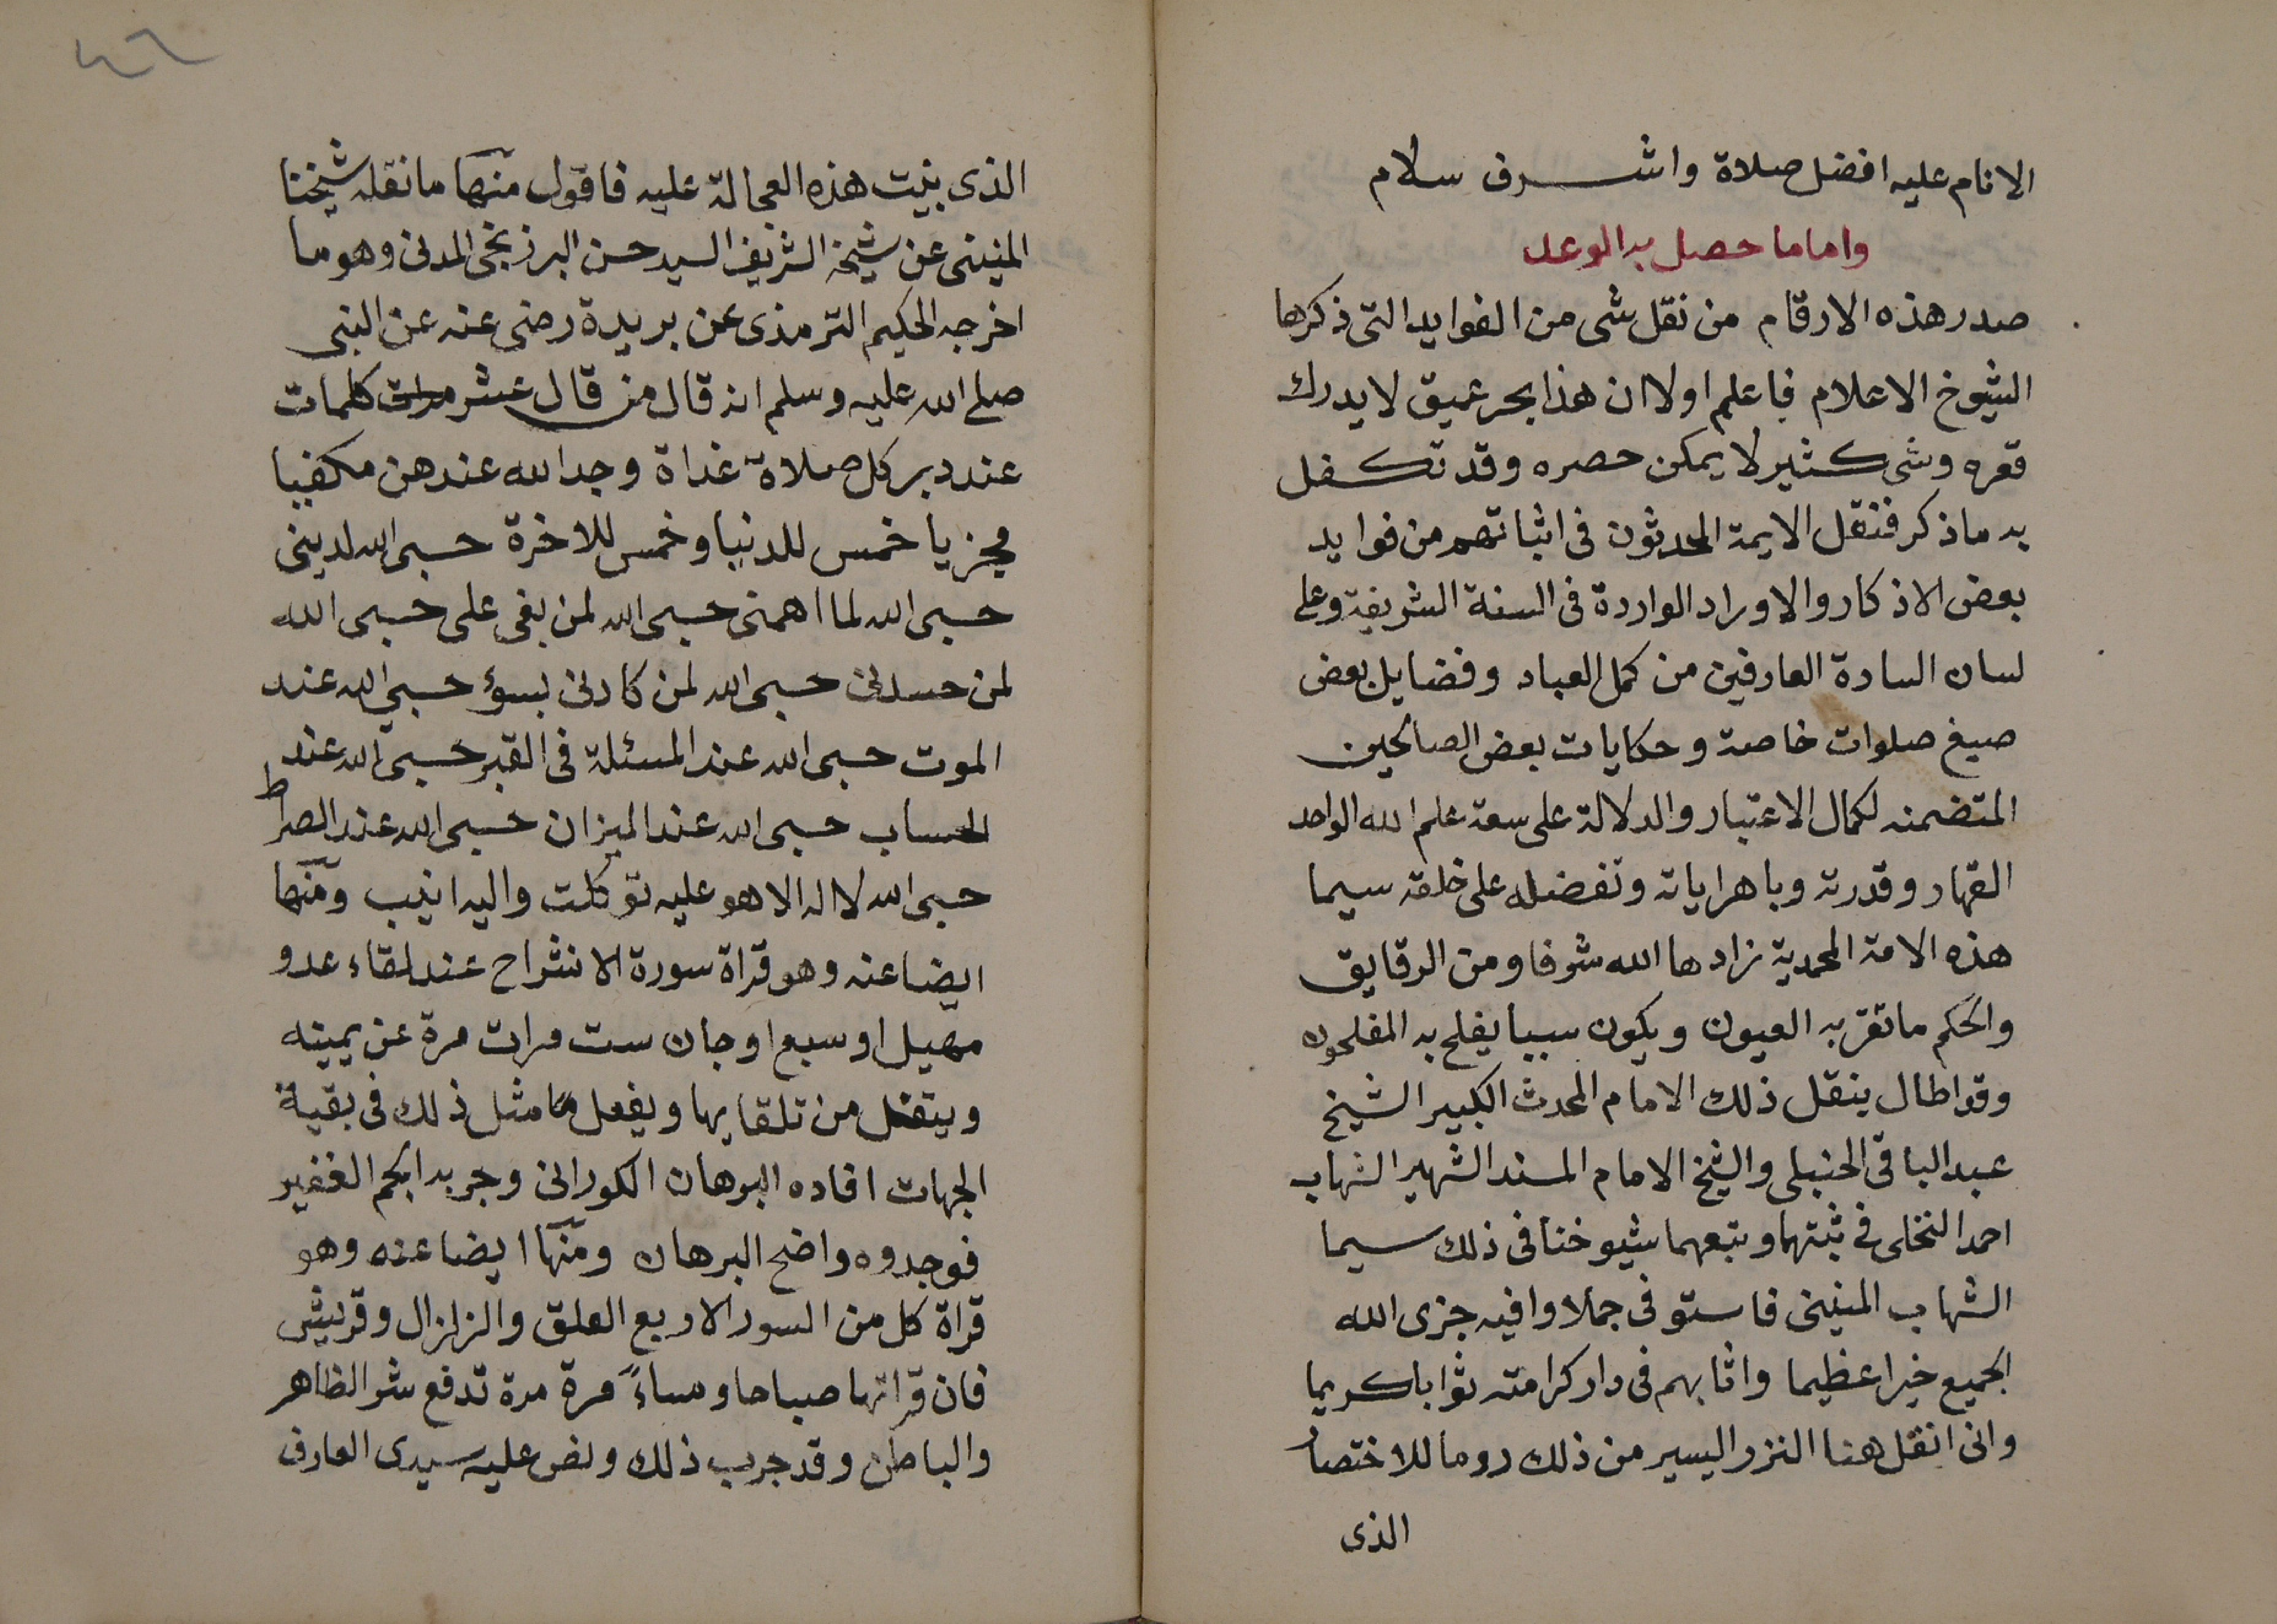 الانام عليه افضل صلاة واشرف سلام
واما ما حصل به الوعد
صدر هذه الارقام من نقل شى من الفوايد التى ذكرها
الشيوخ الاعلام فاعلم اولا ان هذا بحر عميق لا يدرك
قعره وشى كثير لا يمكن حصره وقد تكفل
به ما ذكر فنقل الايمة المحدثون فى اثباتهم من فوايد
بعض الاذكار والاوراد الواردة فى السنة الشريفة وعلى
لسان السادة العارفين من كمل العباد وفضايل بعض
صيغ صلوات خاصة وحكايات بعض الصالحين
المتضمنه لكمال الاعتبار والدلالة على سعة علم الله الواحد
القهار وقدرته وباهر اياته وتفضله على خلقه سيما
هذه الامة المحمدية زادها الله شرفا ومن الرقايق
والحكم ما تقر به العيون ويكون سببا يفلح به المفلحون
وقد اطال ينقل ذلك الامام المحدث الكبير الشيخ
عبد الباقى الحنبلى والشيخ الامام المسند الشهير الشهاب
احمد النخلى فى ثبتهما وتبعهما شيوخنا فى ذلك سيما
الشهاب المنينى فاستوفى جملا وافيه جزى الله
الجميع خيرا عظيما واثابهم فى دار كرامته ثوابا كريما
وانى انقل هنا النزر اليسير من ذلك روما للاختصار
الذى
٤٦
الذى بنيت هذه العجالة عليه فاقول منها ما نقله شيخنا
المنينى عن شيخه الشريف السيد حسن البرزنجى المدنى وهو ما
اخرجه الحكيم الترمذى عن بريدة رضى عنه عن النبى
صلى الله عليه وسلم انه قال من قال عشر مرات كلمات
عند دبر كل صلاة غداة وجد الله عندهن مكفيا
مجزيا خمس للدنيا وخمس للاخرة حسبى الله لدينى
حسبى الله لما اهمنى حسبى الله لمن بغى على حسبى الله
لمن حسدنى حسبى الله لمن كادنى بسوء حسبى الله عند
الموت حسبى الله عند المسئلة فى القبر حسبى الله عند
الحساب حسبى الله عند الميزان حسبى الله عند الصراط
حسبى الله لا اله الا هو عليه توكلت واليه انيب ومنها
ايضا عنه وهو قراة سورة الانشراح عند لقاء عدو
مهيل او سبع او جان ست مرات مرة عن يمينه
ويتفل من تلقايها ويفعل مثل ذلك فى بقية
الجهات افاده البرهان الكورانى وجربه الجم الغفير
فوجدوه واضح البرهان ومنها ايضا عنه وهو
قراة كل من السور الاربع العلق والزلزال وقريش
فان قراتها صباحا ومساءً مرة مرة تدفع شر الظاهر
والباطن وقد جرب ذلك ونص عليه سيدى العارف